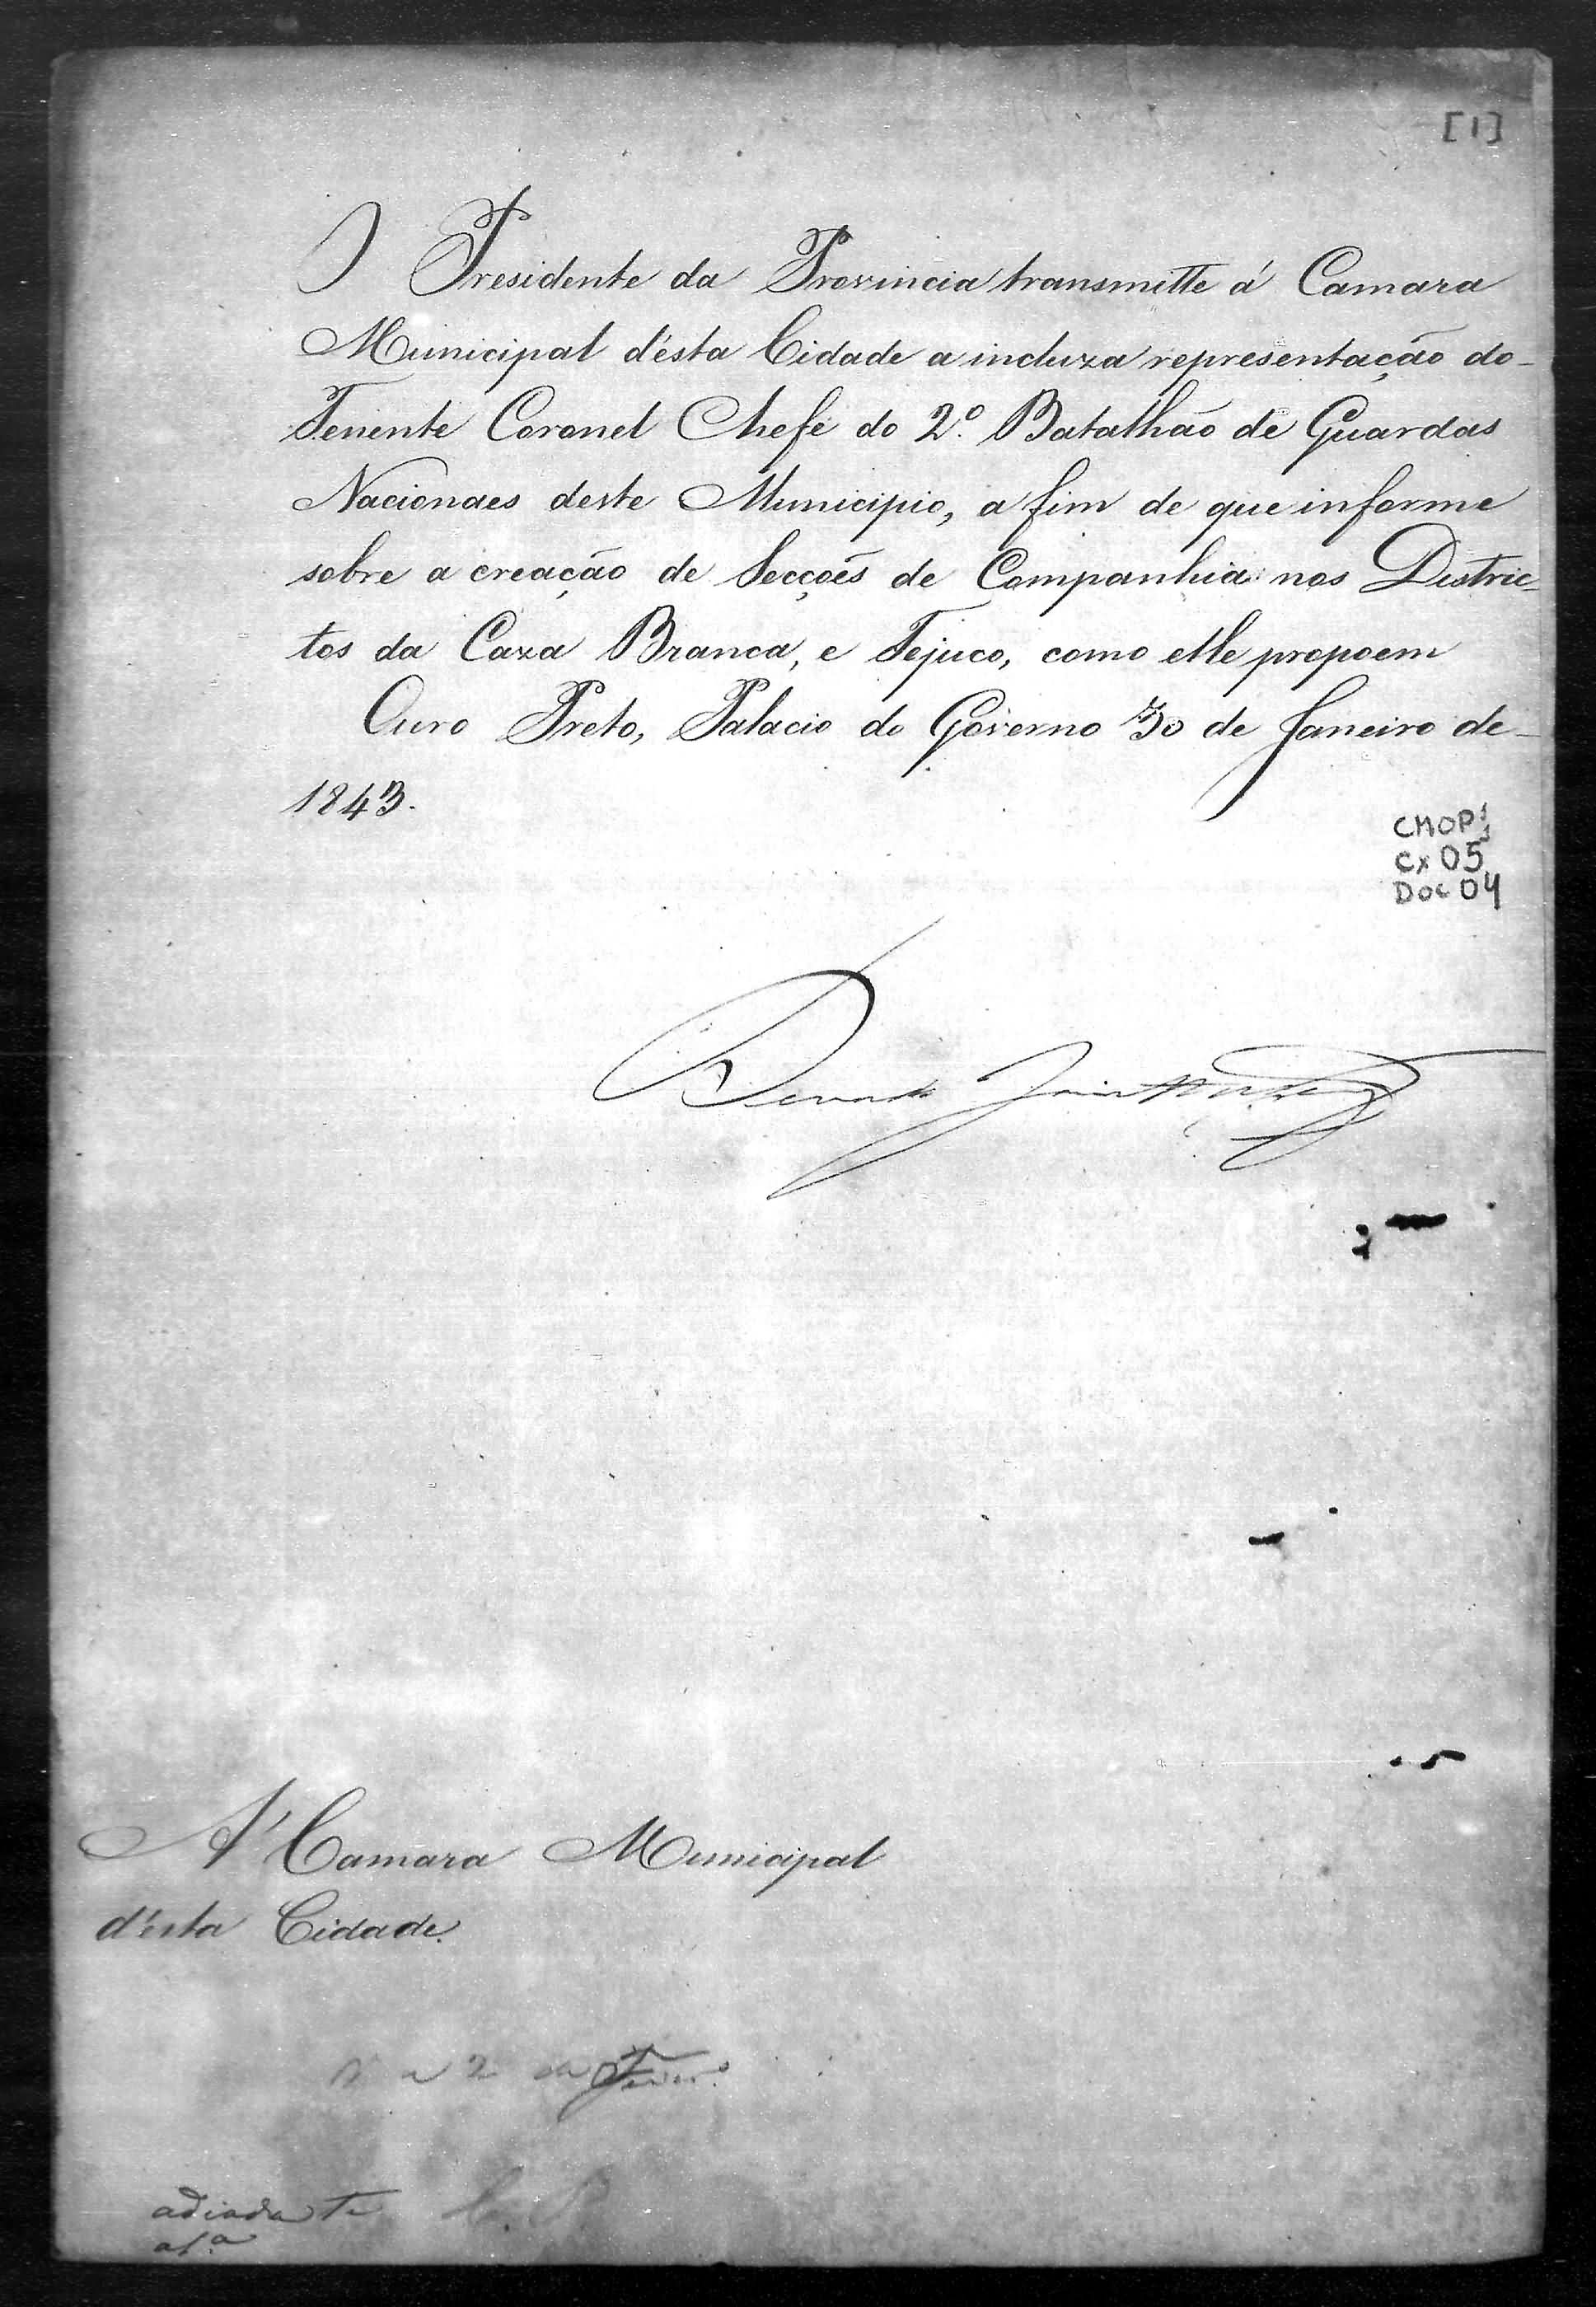 [1]
O Presidente da Provincia transmitte á Camara
Municipal d'ésta Cidade a incluza representação do
Tenente Coronel Chefe do 2.º Batalhão de Guardas
Nacionaes deste Municipio, a fim de que informe
sobre a creação de Secções de Companhia nos Distric-
tos da Caza Branca, e Tejuco, como elle propoem
Ouro Preto, Palacio do Governo 30 de Janeiro de
1843.
CMOP
Cx 05
Doc 04
Bernardo
Á Camara Municipal
d'ésta Cidade.
a 2 de Fever.º
adiada